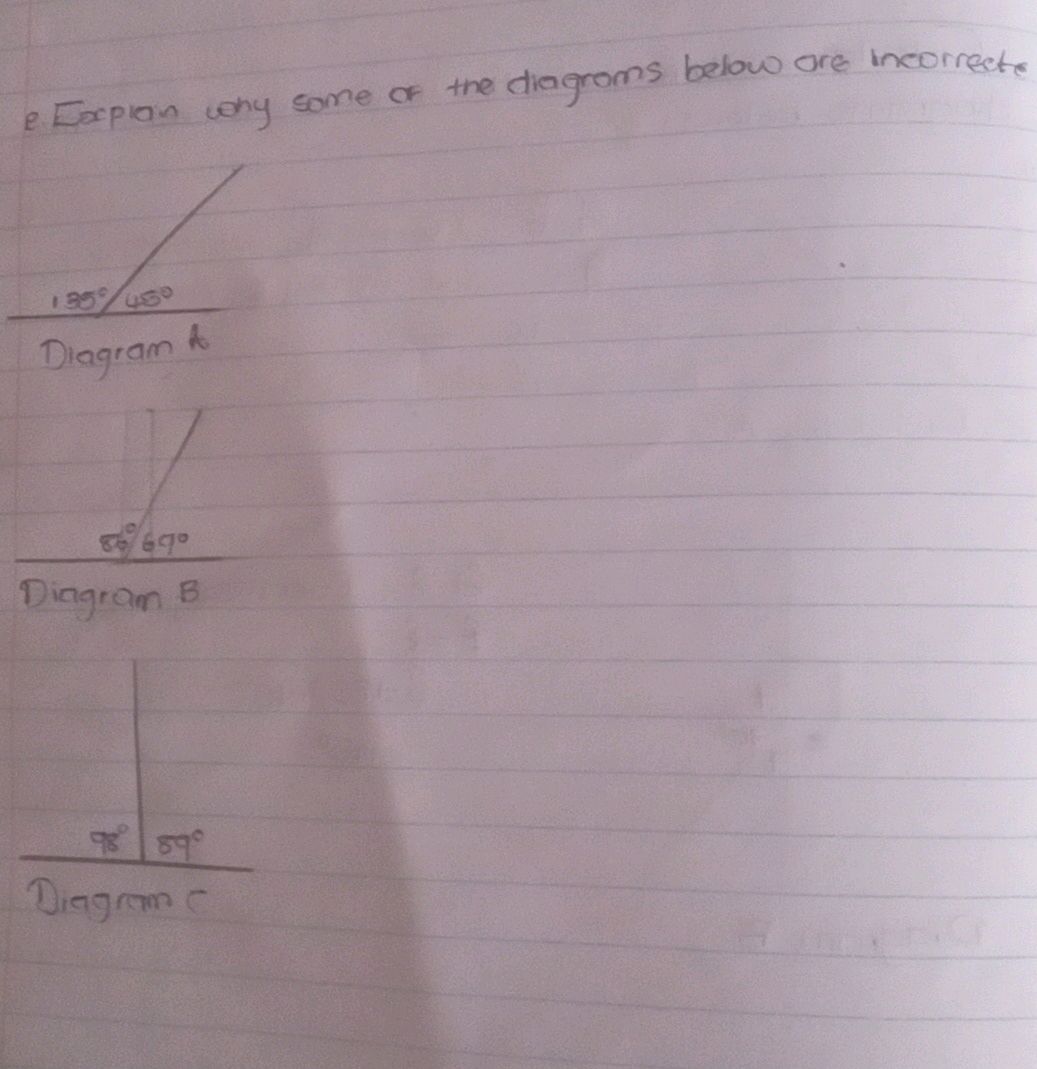 e Excplain why some of the diagrams below are incorrect.
135° 45°
Diagram A
86° 69°
Diagram B
98° 89°
Diagram C